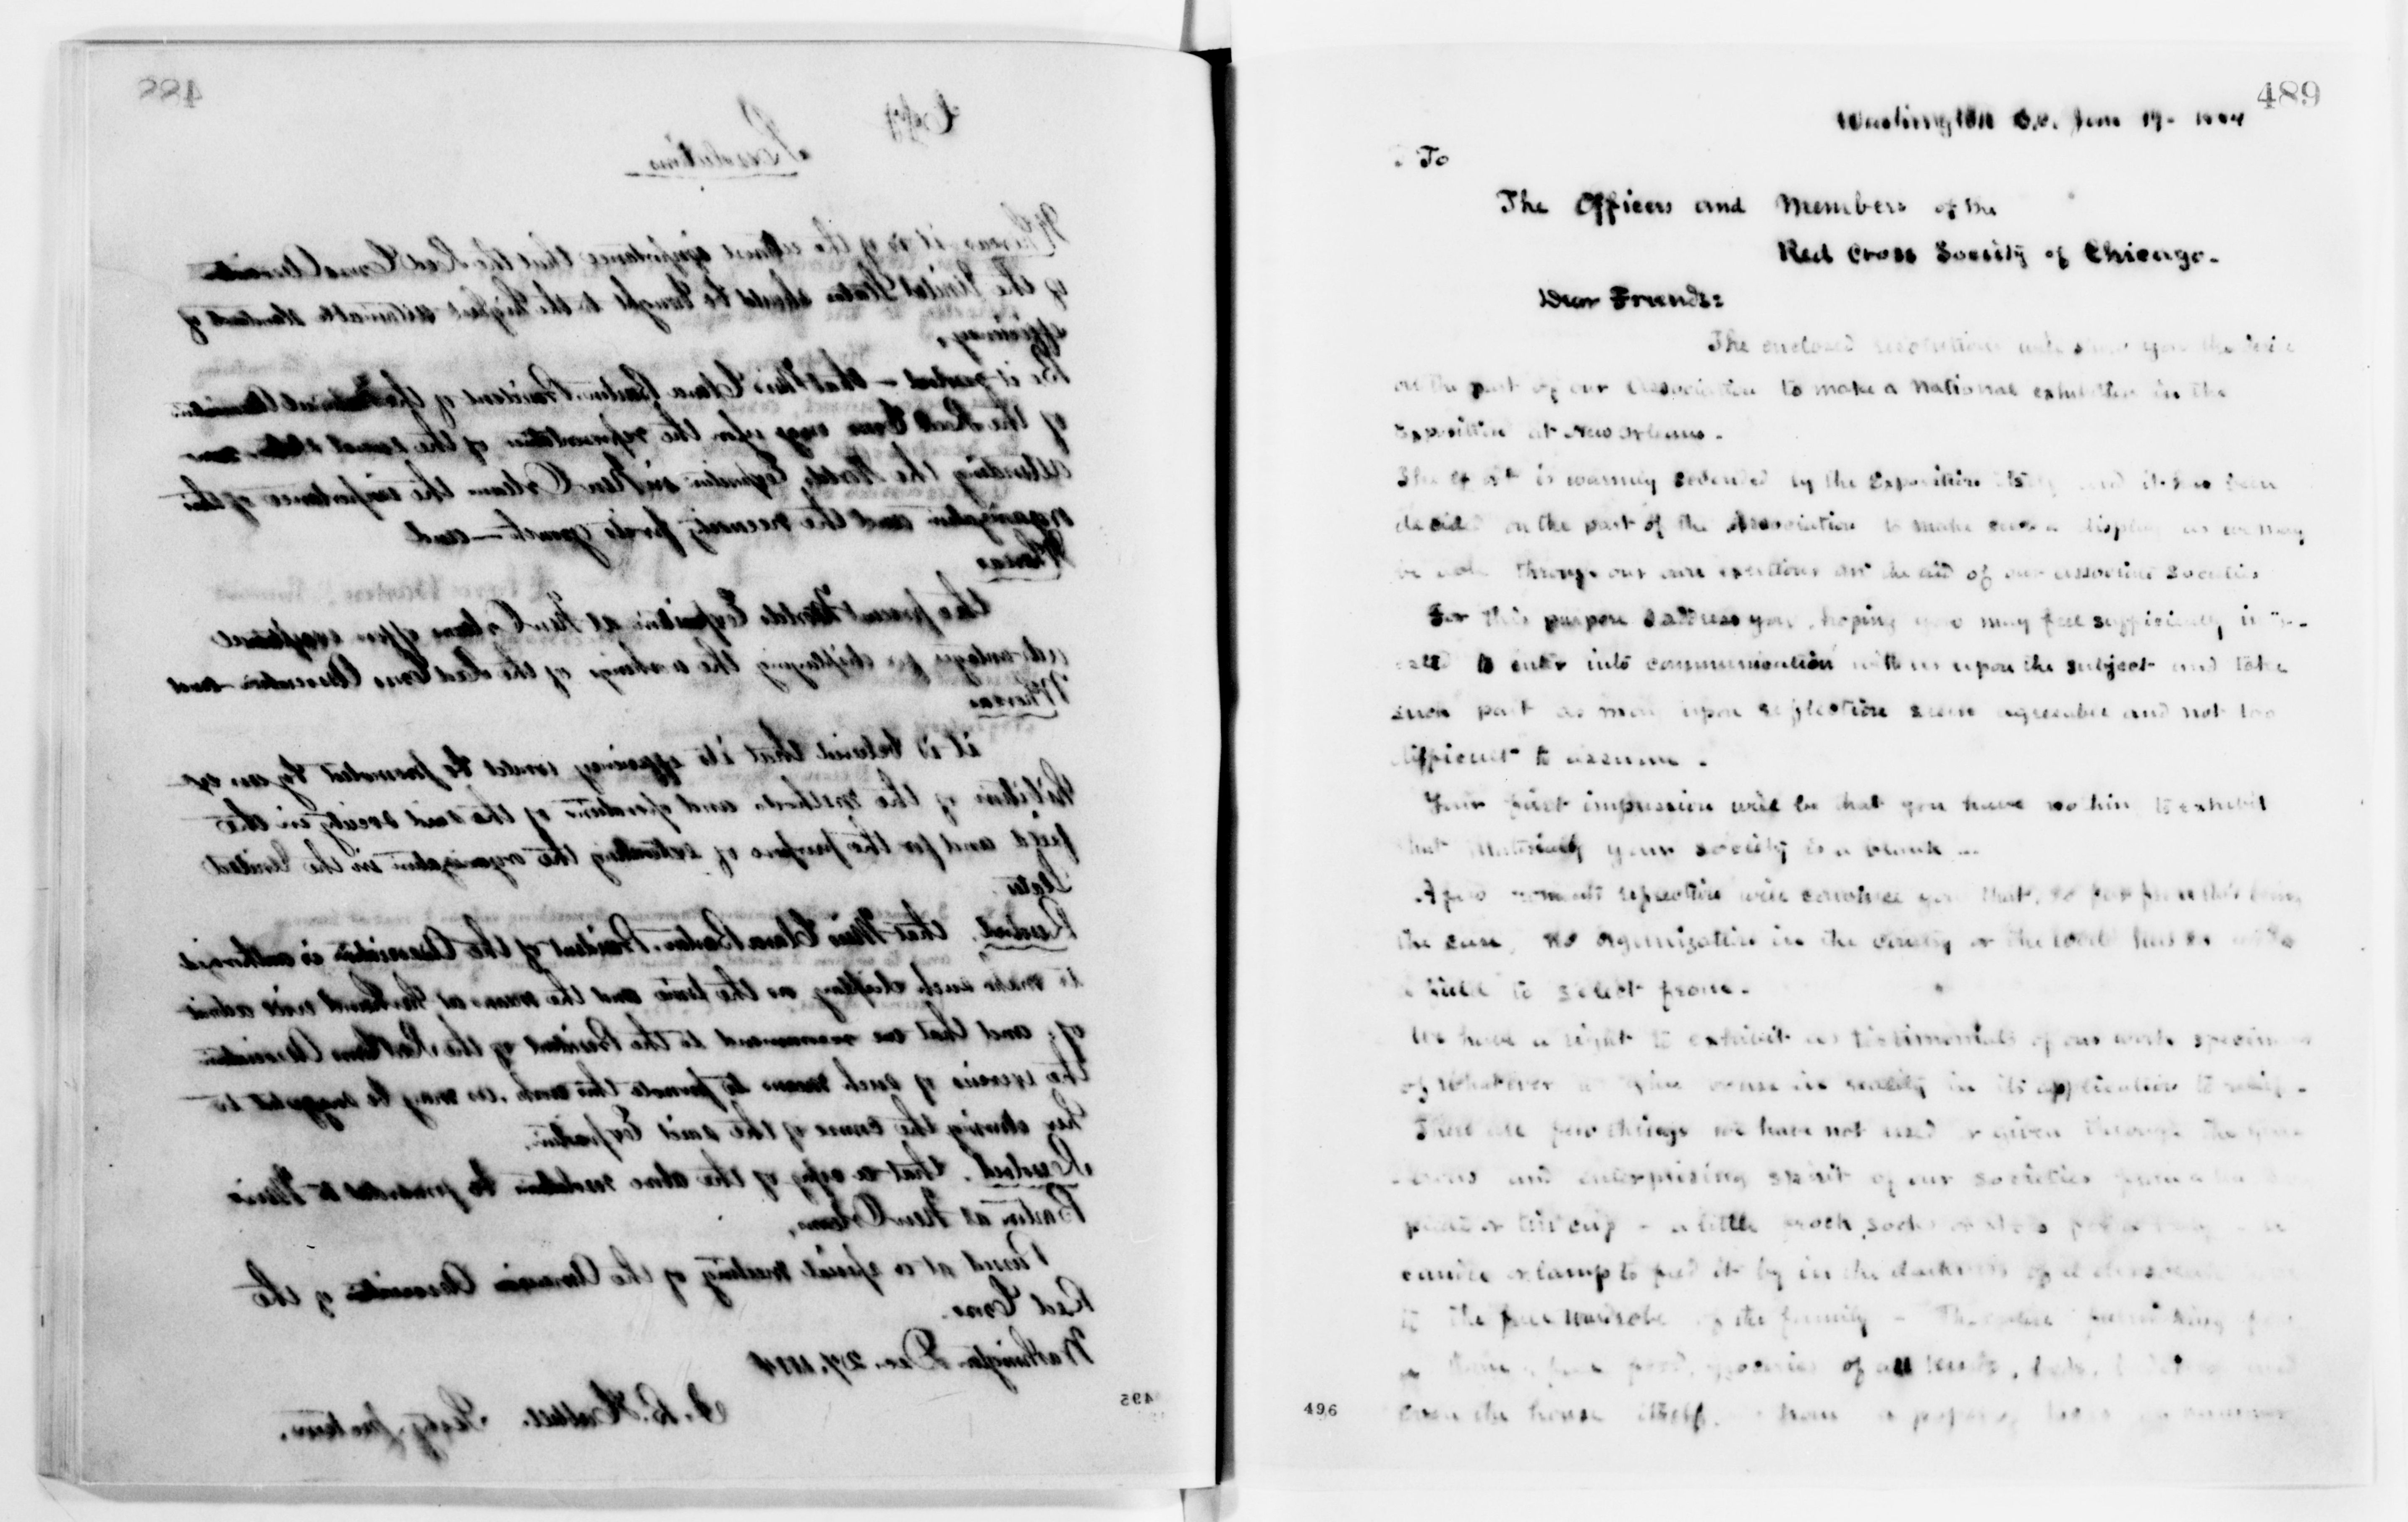 488
Copy
Resolutions
Whereas it is of the utmost importance that the Red Cross Association
of the United States should be brought to the highest attainable standard of
efficiency,
Be it resolved – that Miss Clara Barton, President of the Association
of the Red Cross urge upon the representatives of the several States now
attending the Worlds Exposition in New Orleans the importance of this
organization and the necessity for its growth – and
Whereas
the present Worlds Exposition at New Orleans offers
advantages for displaying the workings of the Red Cross Association – and
Whereas
it is believed that its efficiency would be promoted by an ex-
hibition of the methods and operations of the said society in the
field and for the purpose of extending the organization in the United
States.
Resolved, that Miss Clara Barton, President of the Association is authorized
to make such display as the time and the means at her hand will admit
of; and that we recommend to the President of the Red Cross Association
the exercise of such means to promote this work, as may be suggested to
her during the course of the said Exposition.
Resolved. that a copy of the above resolutions be forwarded to Miss
Barton at New Orleans.
Passed at a special meeting of the American Association of the
Red Cross.
Washington Dec. 27, 1884
Secty. pro tem.
495
489
Washington D.C. Jan 19- 1884
To
The Officers and Members of the
Red Cross Society of Chicago-
Dear Friends:
The enclosed resolutions will show you the desire
on the part of our Association to make a National exhibition in the
Exposition at New Orleans.
The effort is warmly seconded by the Exposition itself and it has been
decided on the part of the Association to make such a display as we may
be able through our own exertions and the aid of our associate Societies
For this purpose I address you, hoping you may feel sufficiently inter-
ested to enter into communication with us upon the subject and take
such part as may upon reflection seem agreeable and not too
difficult to assume.
Your first impression will be that you have nothing to exhibit
that materially your society is a blank –
A few moments reflection will convince you that, so far from this being
the case, no organization in the country or the world has so wide
a field to select from-
We have a right to exhibit as testimonials of our work specimens
of whatever we have made use in reality in its application to relief-
There are few things we have not used or given through the gene-
-rous and enterprising spirit of our societies from a tin
plate or tin cup – a little frock, socks or shoes for a
candle or lamp to find it by in the darkness of a
to the full wardrobe of the family –
of all kinds, beds,
even the house itself,
496